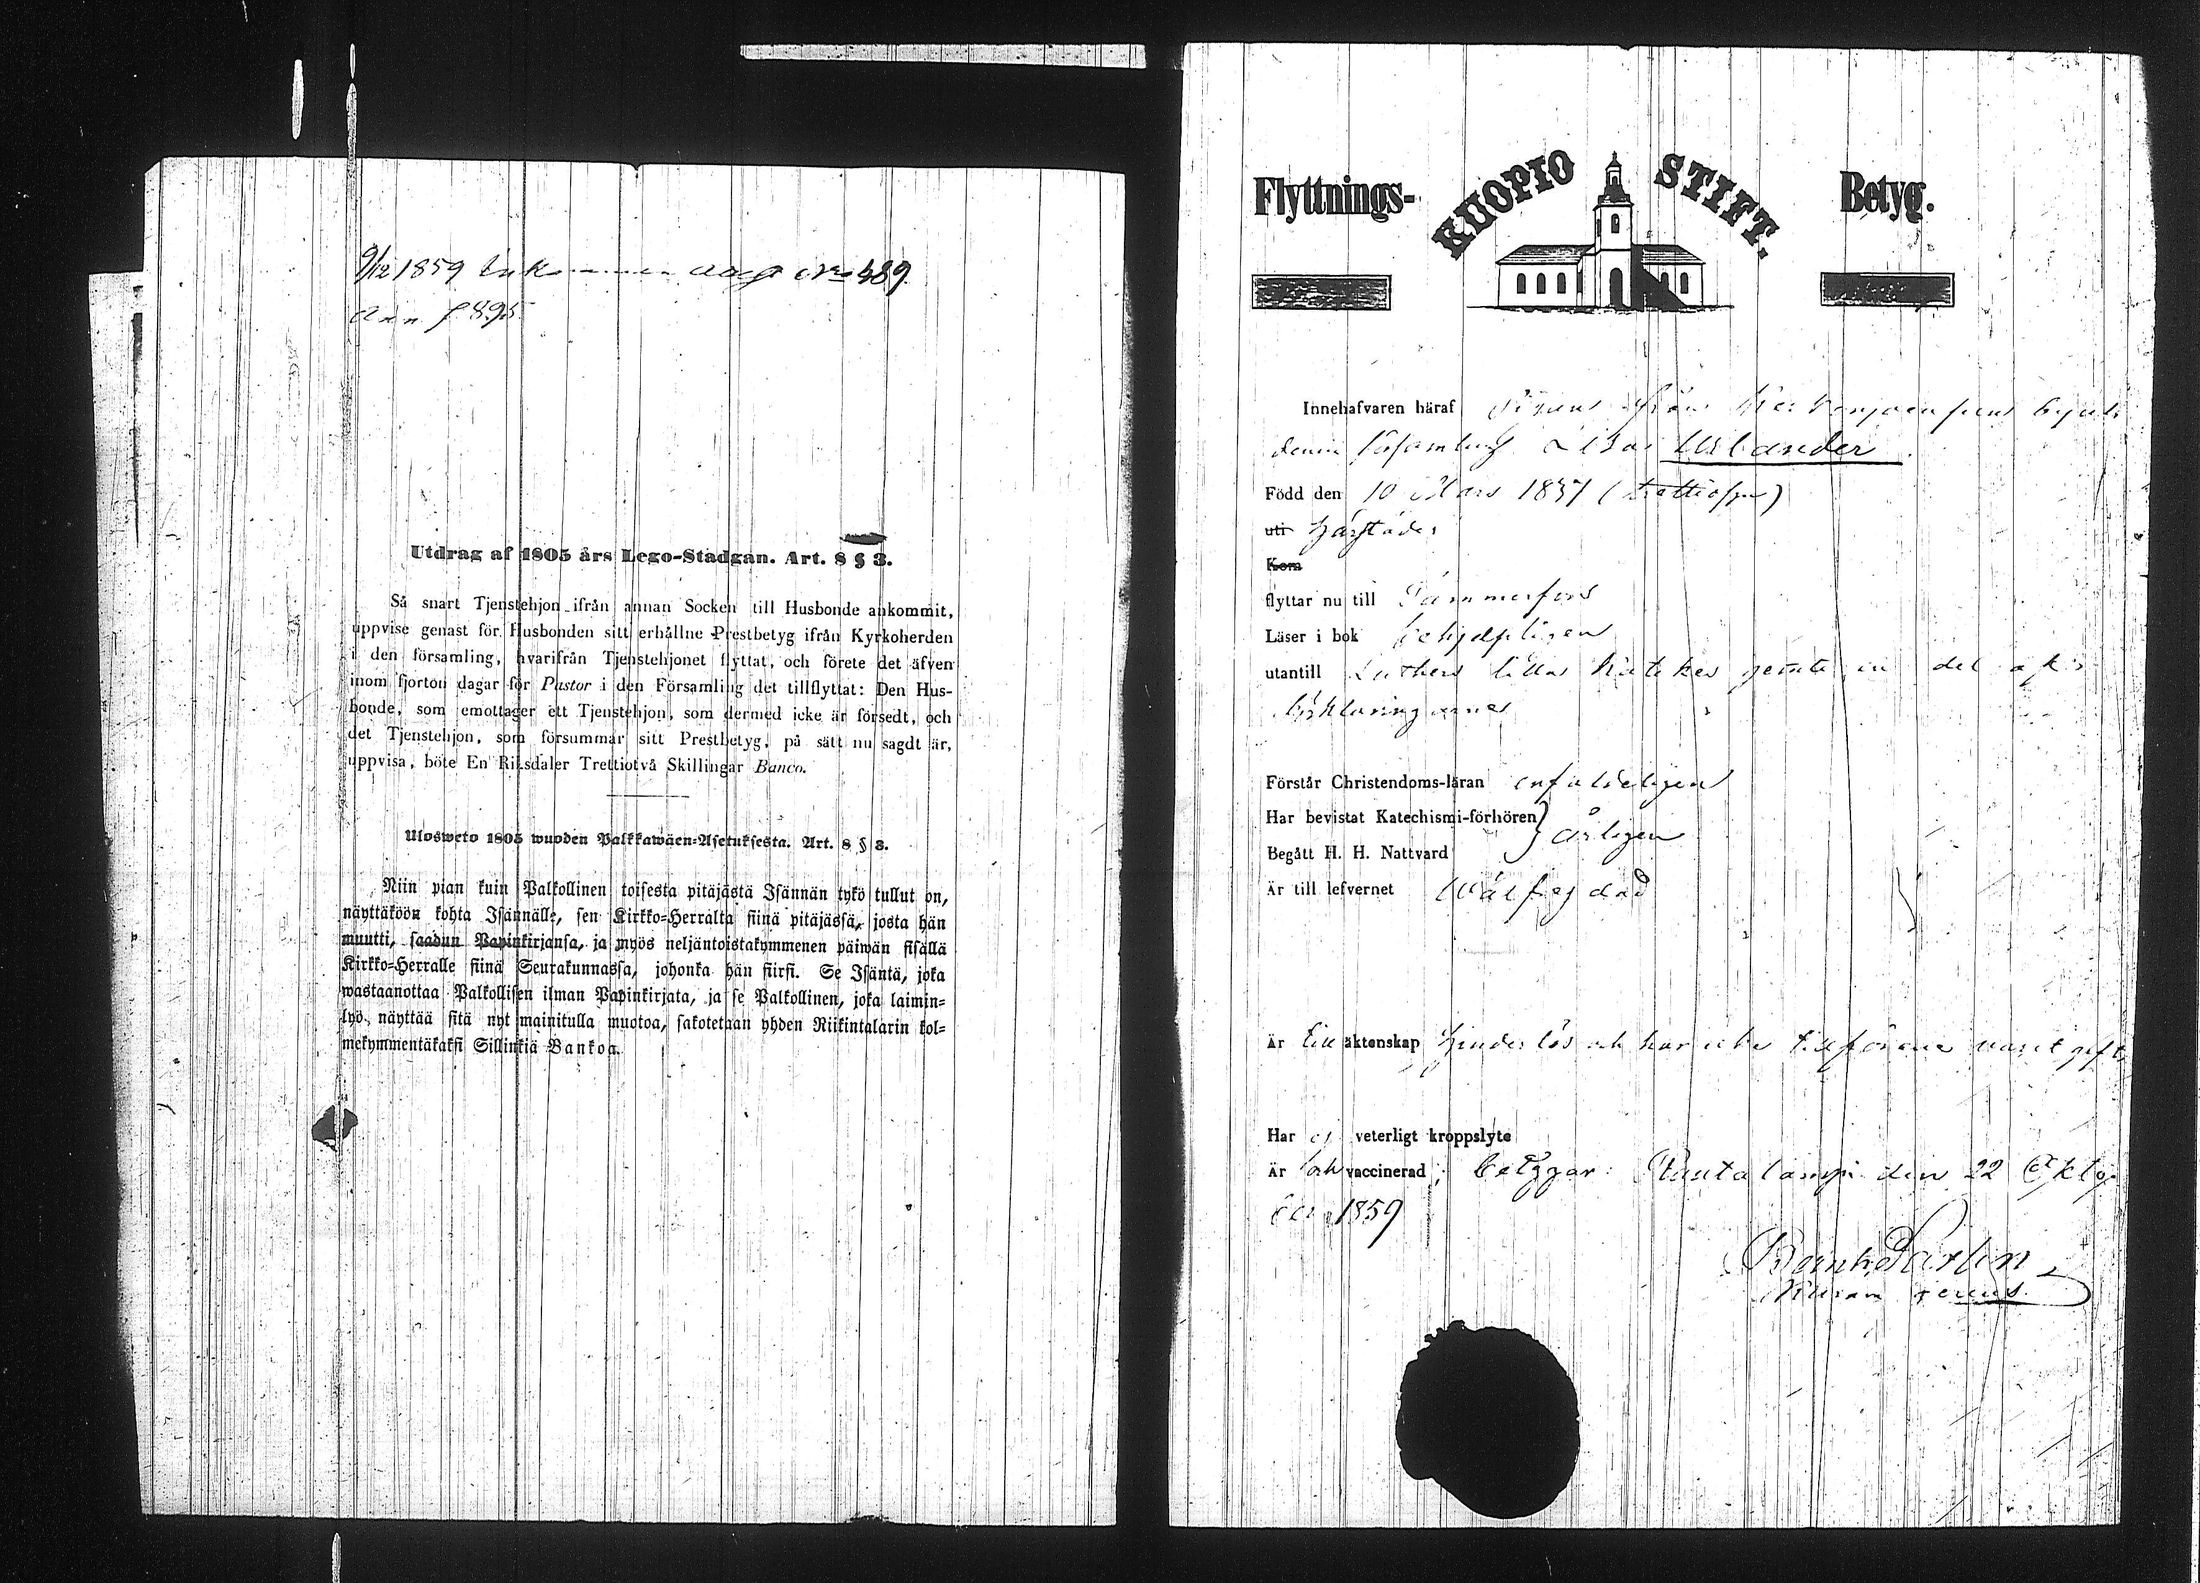 9/12 1859 No 489
Utdrag af 1805 års Lego-Stadgan. Art. 8 § 3.
Så snart Tjenstehjon ifrån annan Socken till Husbonde ankommit,
uppvise genast för Husbonden sitt erhållne Prestbetyg ifrån Kyrkoherden
i den församling, hvarifrån Tjenstehjonet flyttat, och förete det äfven
inom fjorton dagar för Pastor i den Församling det tillflyttat: Den Hus-
bonde, som emottager ett Tjenstehjon, som dermed icke är försedt, och
det Tjenstehjon, som försummar sitt Prestbetyg, på sätt nu sagdt är,
uppvisa, böte En Riksdaler Trettiotvå Skillingar Banco.
Ulosweto 1805 wuoden Palkkawäen-Asetuksesta. Art. 8 § 3.
Niin pian kuin Palkollinen toisesta pitäjästä Isännän tykö tullut on,
näyttäköön kohta Isännälle, sen Kirkko-Herralta siinä pitäjässä, josta hän
muutti, saadun Papinkirjansa, ja myös neljäntoistakymmenen päiwän sisällä
Kirkko-Herralle siinä Seurakunnassa, johonka hän siirsi. Se Isäntä, joka
wastaanottaa Palkollisen ilman Papinkirjata, ja se Palkollinen, joka laimin-
lyö näyttää sitä nyt mainitulla muotoa, sakotetaan yhden Riikintalarin kol-
mekymmentäkaksi Sillinkiä Bankoa.
Flyttnings- KUOPIO STIFT. Betyg.
Innehafvaren häraf Pigan från
denna församling Usbander
Född den 10 Mars 1837
uti härstädes
Kom
flyttar nu till Tammerfors
Läser i bok behjelpligen
utantill Luthers lilla Kateches jemte en del af
förklaringarne
Förstår Christendoms-läran enfaldeligen
Har bevistat Katechismi-förhören } årligen
Begått H. H. Nattvard
Är till lefvernet välfrejdad
Är till äktenskap hinderlös och har icke tillförene varit gift
Har ej veterligt kroppslyte
Är och vaccinerad; betygar: Rautalampi den 22 Okto-
ber 1859